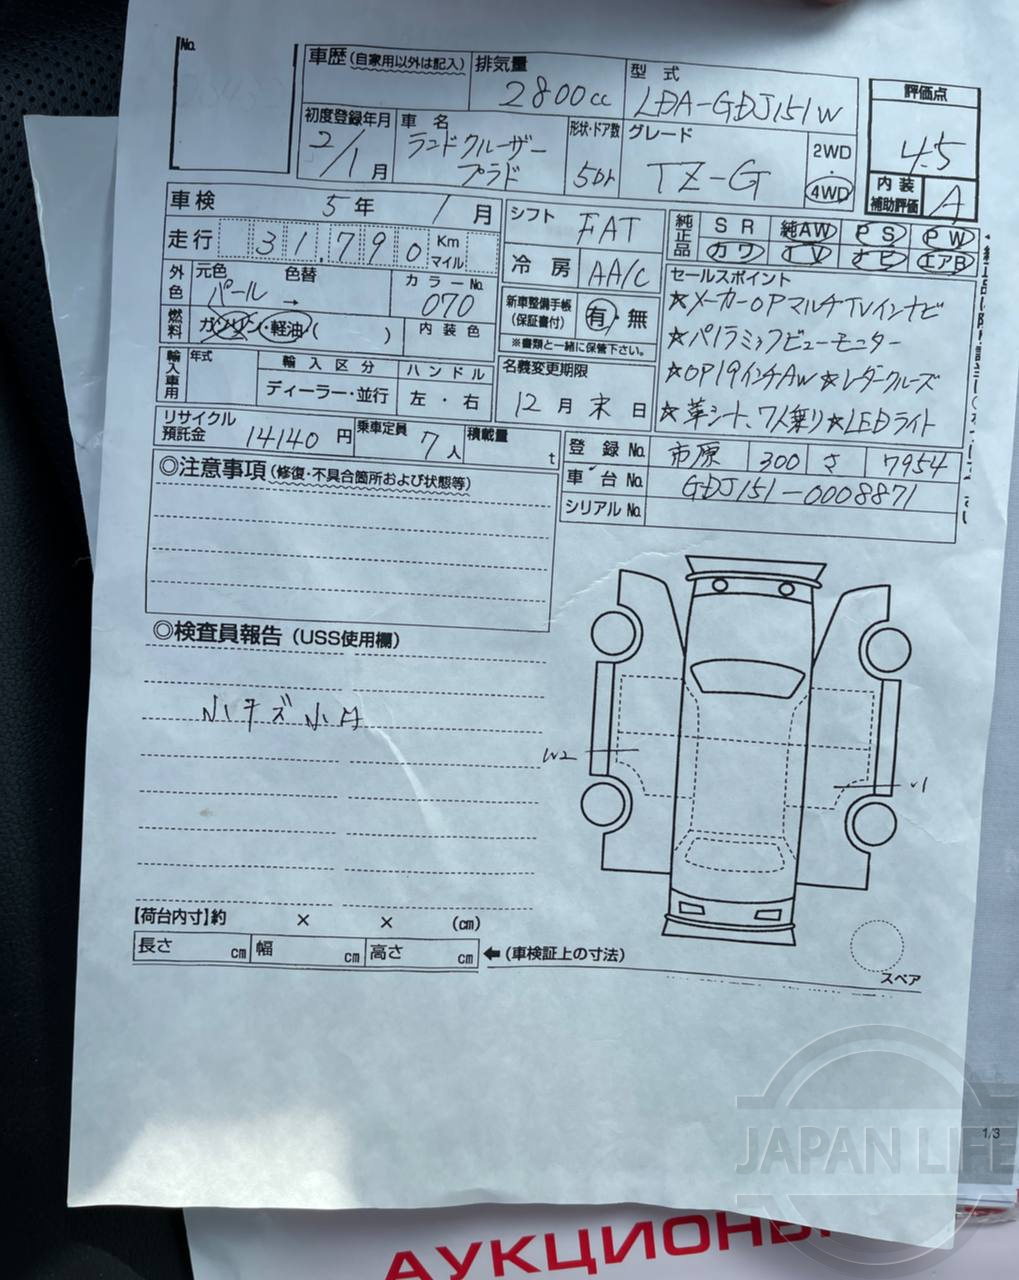 No.
車歴(自家用以外は記入) 排気量 2800cc 型式 LDA-GDJ151W
評価点 4.5
初度登録年月 2/1月 車名 ランドクルーザー プラド 形状・ドア数 5Dr グレード TZ-G 2WD・4WD
内装補助評価 A
車検 5年 1月 シフト FAT 純正品 SR 純AW PS PW
走行 31,790 Km マイル 冷房 AA/C カワ TV ナビ エアB
外色 元色 パール 色替 → カラーNo. 070 新車整備手帳(保証書付) 有・無 セールスポイント
燃料 ガソリン・軽油( ) 内装色 ※書類と一緒に保管下さい。
☆メーカーOPマルチTVインナビ
☆パノラミックビューモニター
☆OP19インチAW☆レダークルーズ
☆革シート、7人乗り☆LEDライト
輸入車用 年式 輸入区分 ディーラー・並行 ハンドル 左・右 名義変更期限 12月末日
リサイクル預託金 14140円 乗車定員 7人 積載量 t
登録No. 市原 300 さ 7954
車台No. GDJ151-0008871
シリアルNo.
◎注意事項(修復・不具合箇所および状態等)
◎検査員報告(USS使用欄)
小キズ小凹
W2
【荷台内寸】約 × × (cm)
長さ cm 幅 cm 高さ cm ←(車検証上の寸法)
スペア
1/3
JAPAN LIFE
АУКЦИОНЫ